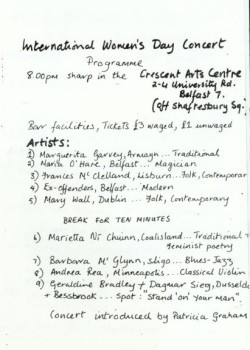 International Women's Day Concert
Programme
8.00pm sharp in the Crescent Arts Centre
2-4 University Rd.
Belfast 7.
(off Shaftesbury Sq.
Bar facilities, Tickets £3 waged, £1 unwaged
Artists:
1) Marguerita Garvey, Armagh... Traditional
2) Maria O'Hare, Belfast... Magician
3) Frances McClelland, Lisburn... Folk, Contemporar
4) Ex-offenders, Belfast... Modern
5) Mary Wall, Dublin ... Folk, Contemporary
BREAK FOR TEN MINUTES
6) Marietta Ní Chuinn, Coalisland... Traditional +
feminist poetry
7) Barbara McGlynn, Sligo... Blues-Jazz
8) Andrea Rea, Minneapolis... Classical Violin
9) Geraldine Bradley + Dagmar Sieg, Dusseldo
+ Bessbrook... Spot: "Stand 'on' Your man".
Concert introduced by Patricia Graham